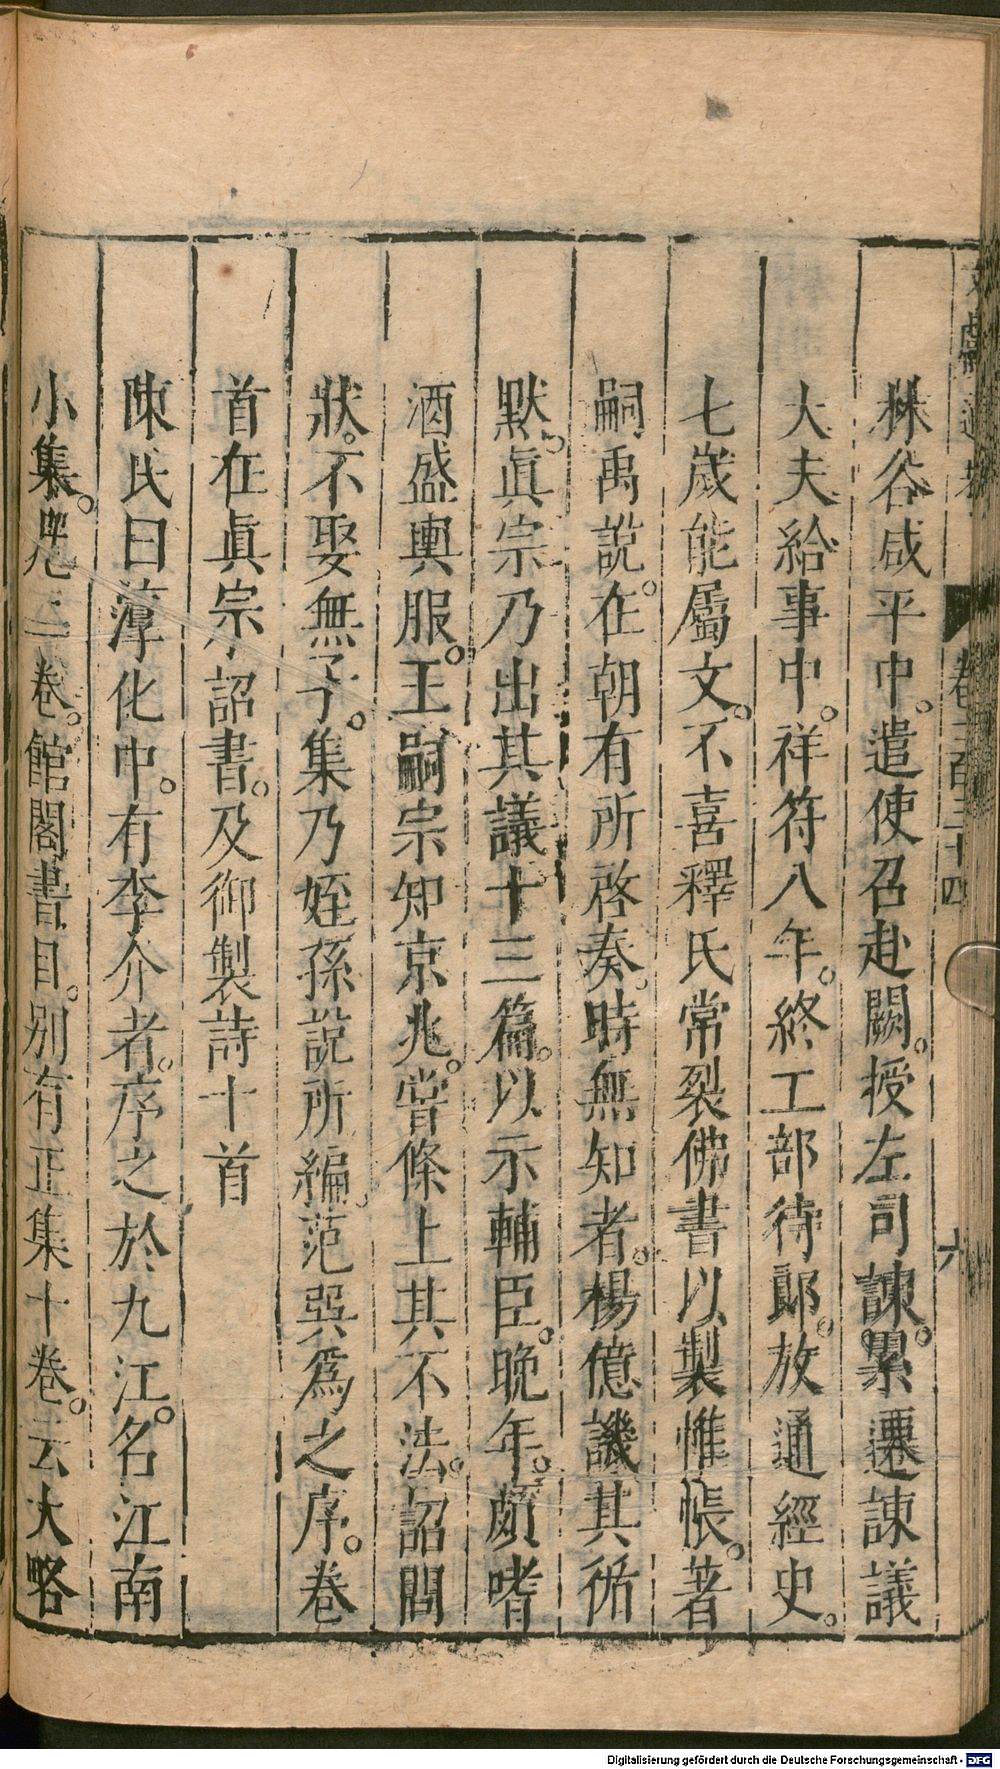 林谷咸平中遣使召赴闕授左司諫累遷諫議
大夫給事中祥符八年終工部侍郞放通經史
七歲能屬文不喜釋氏常裂佛書以製帷帳著
嗣禹說在朝有所啓奏時無知者楊億譏其循
默眞宗乃出其議十三篇以示輔臣晚年頗嗜
酒盛輿服王嗣宗知京兆嘗條上其不法詔問
狀不娶無子集乃姪孫說所編范巽爲之序卷
首在眞宗詔書及御製詩十首
陳氏曰淳化中有李介者序之於九江名江南
小集凡二卷館閣書目別有正集十卷云大略
卷二百三十四
六
Digitalisierung gefördert durch die Deutsche Forschungsgemeinschaft - DFG